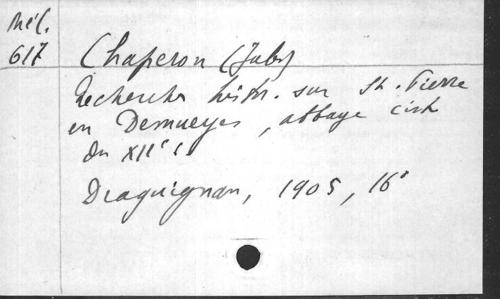 Mél.
617 Chaperon (Jules)
Recherches histr. sur St. Pierre
en Demueyes, abbaye cist.
du XIIe s.
Draguignan, 1905, 16°